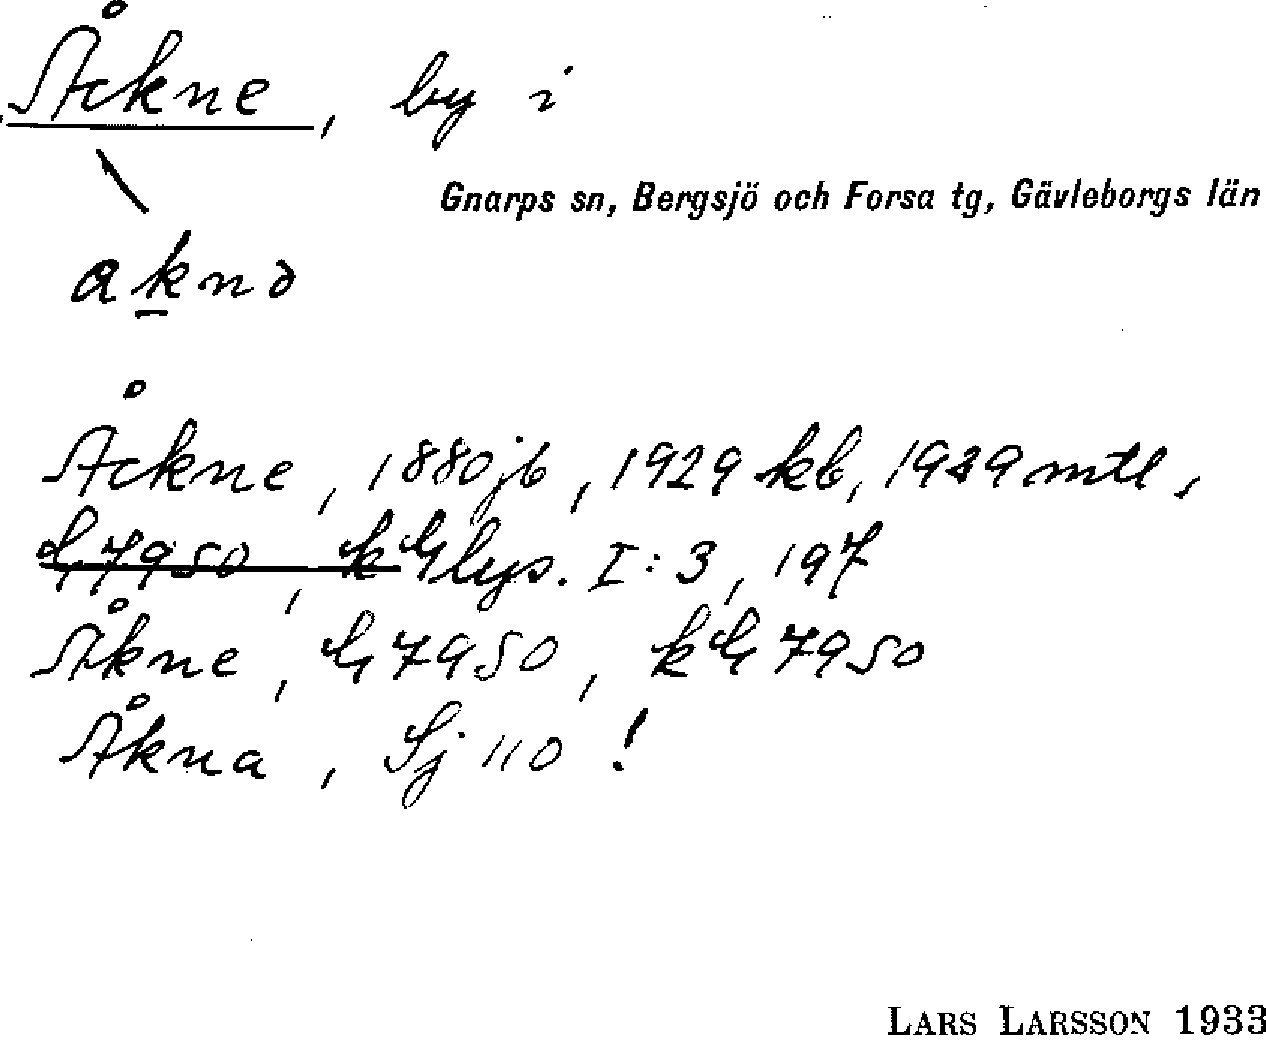 Åckne, by i
Gnarps sn, Bergsjö och Forsa tg, Gävleborgs län
aknə
Åckne, 1880 jb, 1929 kb, 1939 mtl,
G 7950, kG lys. I:3, 197
Åkne, G 7950, kG 7950
Åkna, Sj 110 !
LARS LARSSON 1933